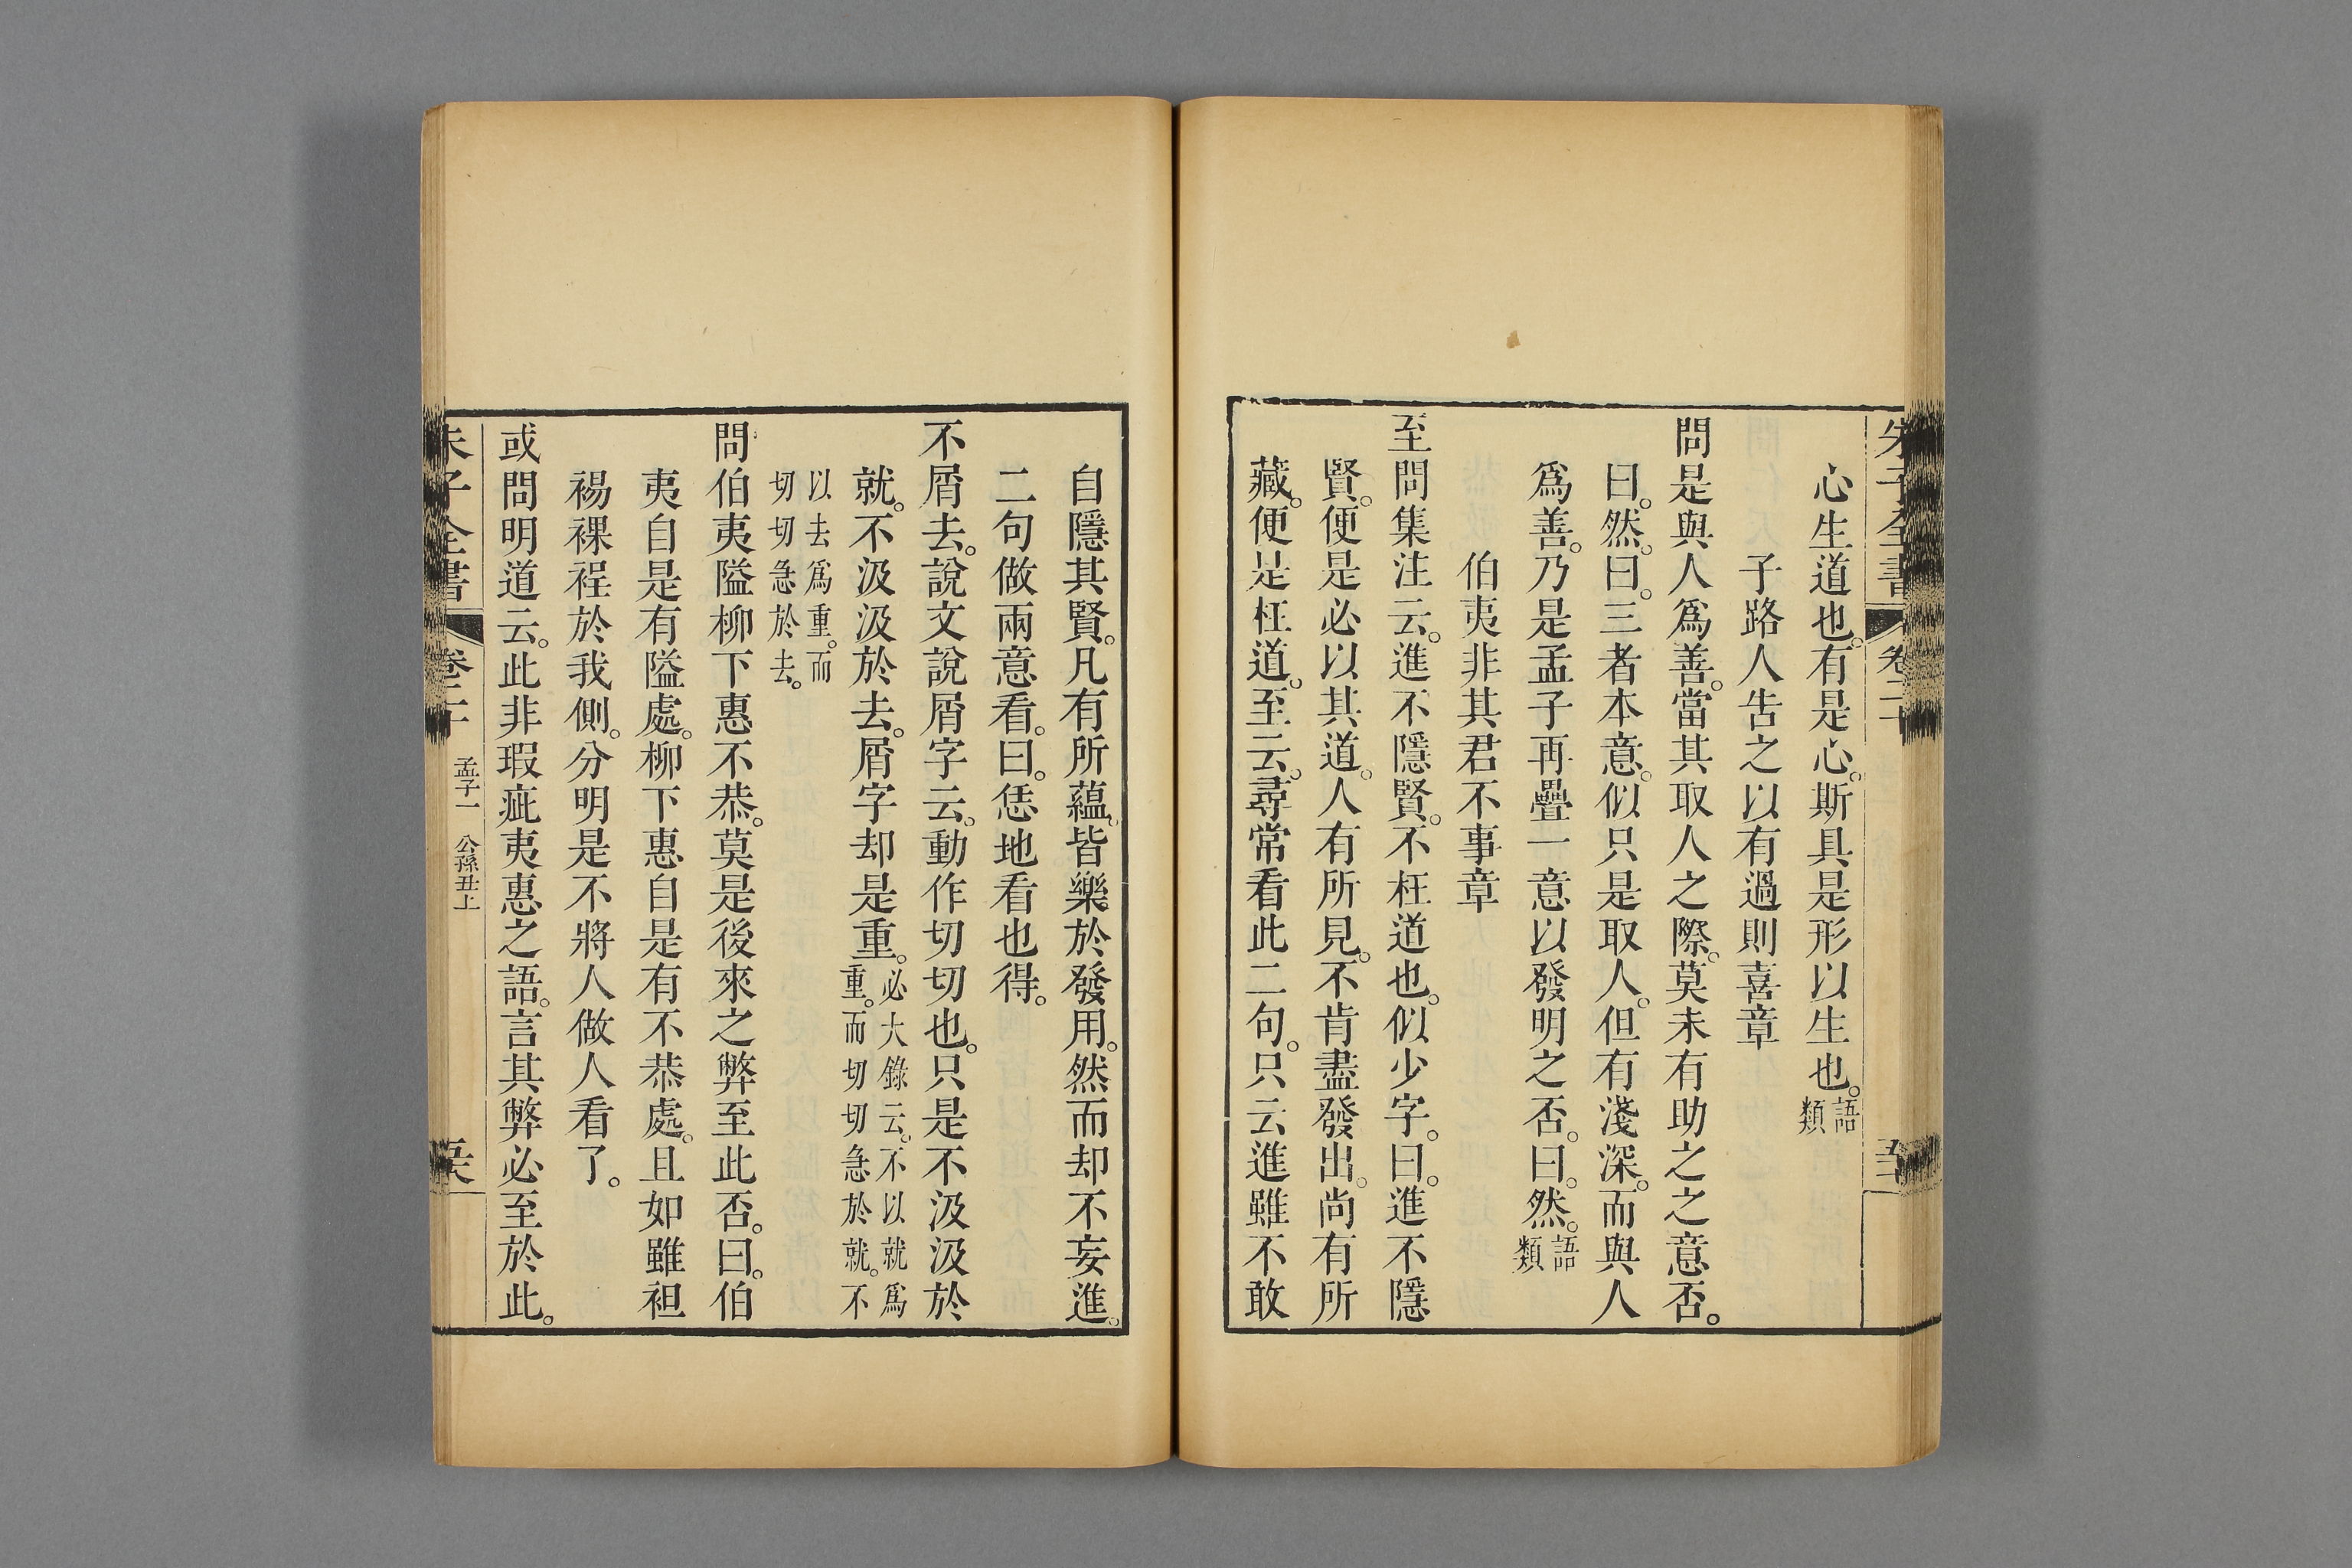 心生道也。有是心。斯具是形以生也。語類
子路人告之以有過則喜章
問是與人爲善。當其取人之際。莫未有助之之意否。
曰。然。曰。三者本意。似只是取人。但有淺深。而與人
爲善。乃是孟子再疊一意以發明之否。曰。然。語類
伯夷非其君不事章
至問集注云。進不隱賢。不枉道也。似少字。曰。進不隱
賢。便是必以其道。人有所見。不肯盡發出。尚有所
藏。便是枉道。至云。尋常看此二句。只云進雖不敢
自隱其賢。凡有所蘊。皆樂於發用。然而却不妄進。
二句做兩意看。曰。恁地看也得。
不屑去。說文說屑字云。動作切切也。只是不汲汲於
就。不汲汲於去。屑字却是重。必大錄云。不以就爲
重。而切切急於就。不
以去爲重。而
切切急於去。
問伯夷隘柳下惠不恭。莫是後來之弊至此否。曰。伯
夷自是有隘處。柳下惠自是有不恭處。且如雖袒
裼裸裎於我側。分明是不將人做人看了。
或問明道云。此非瑕疵夷惠之語。言其弊必至於此。
朱子全書 卷二十 孟子一 公孫丑上